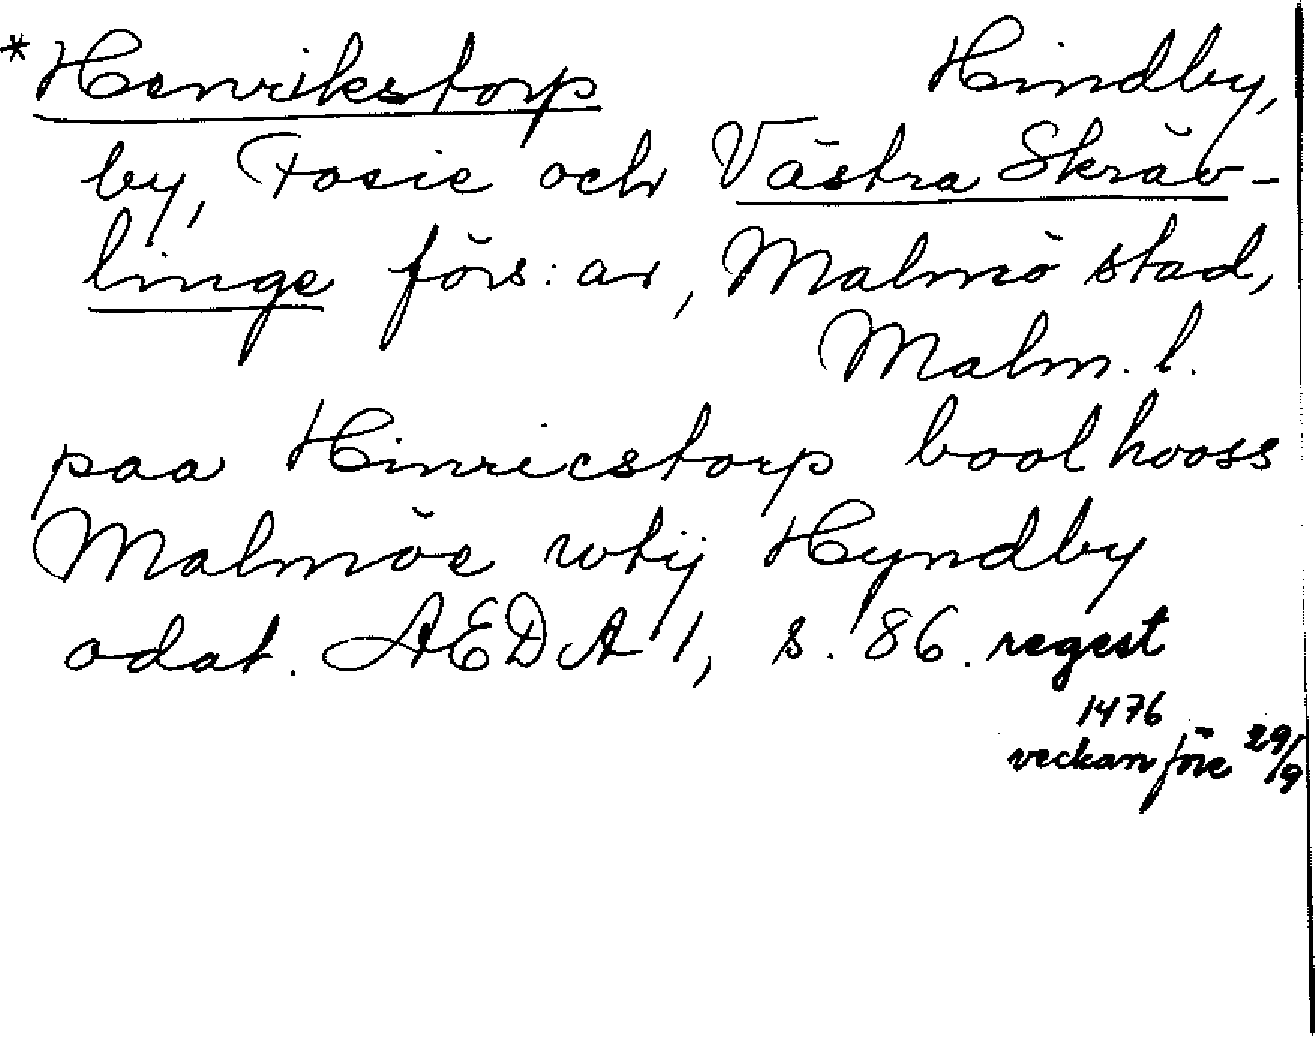 *Henrikstorp Hindby,
by, Fosie och Västra Skräv-
linge förs:ar, Malmö stad,
Malm. l.
paa Hinricstorp bool hooss
Malmöe wtij Hyndby
odat. AEDA 1, s. 86. regest
1476
veckan före 29/9